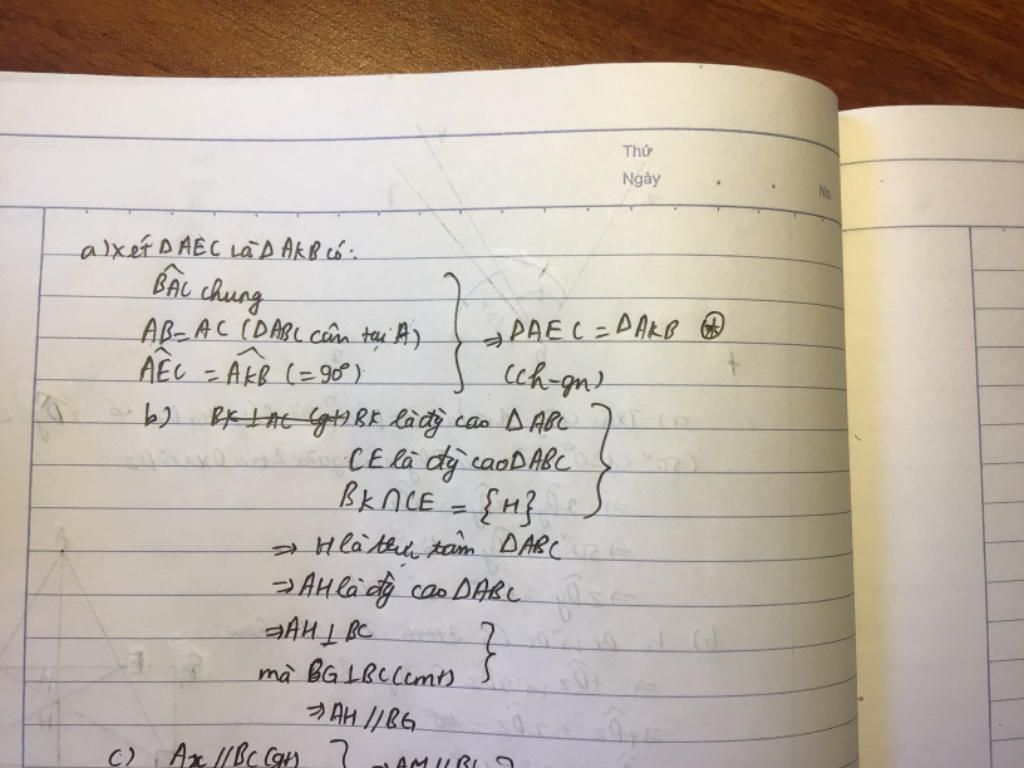 Thứ
Ngày
No.
a) xét ΔAEC và ΔAKB có:
B̂AC chung
AB = AC (ΔABC cân tại A)
ÂEC = ÂKB (= 90°)
⇒ ΔAEC = ΔAKB ⊛
(ch-gn)
b) BK ⊥ AC (gt) BK là đg cao ΔABC
CE là đg cao ΔABC
BK ∩ CE = {H}
⇒ H là trực tâm ΔABC
⇒ AH là đg cao ΔABC
⇒ AH ⊥ BC
mà BG ⊥ BC (cmt)
⇒ AH // BG
c) Ax // BC (gt)
⇒ AM // BC